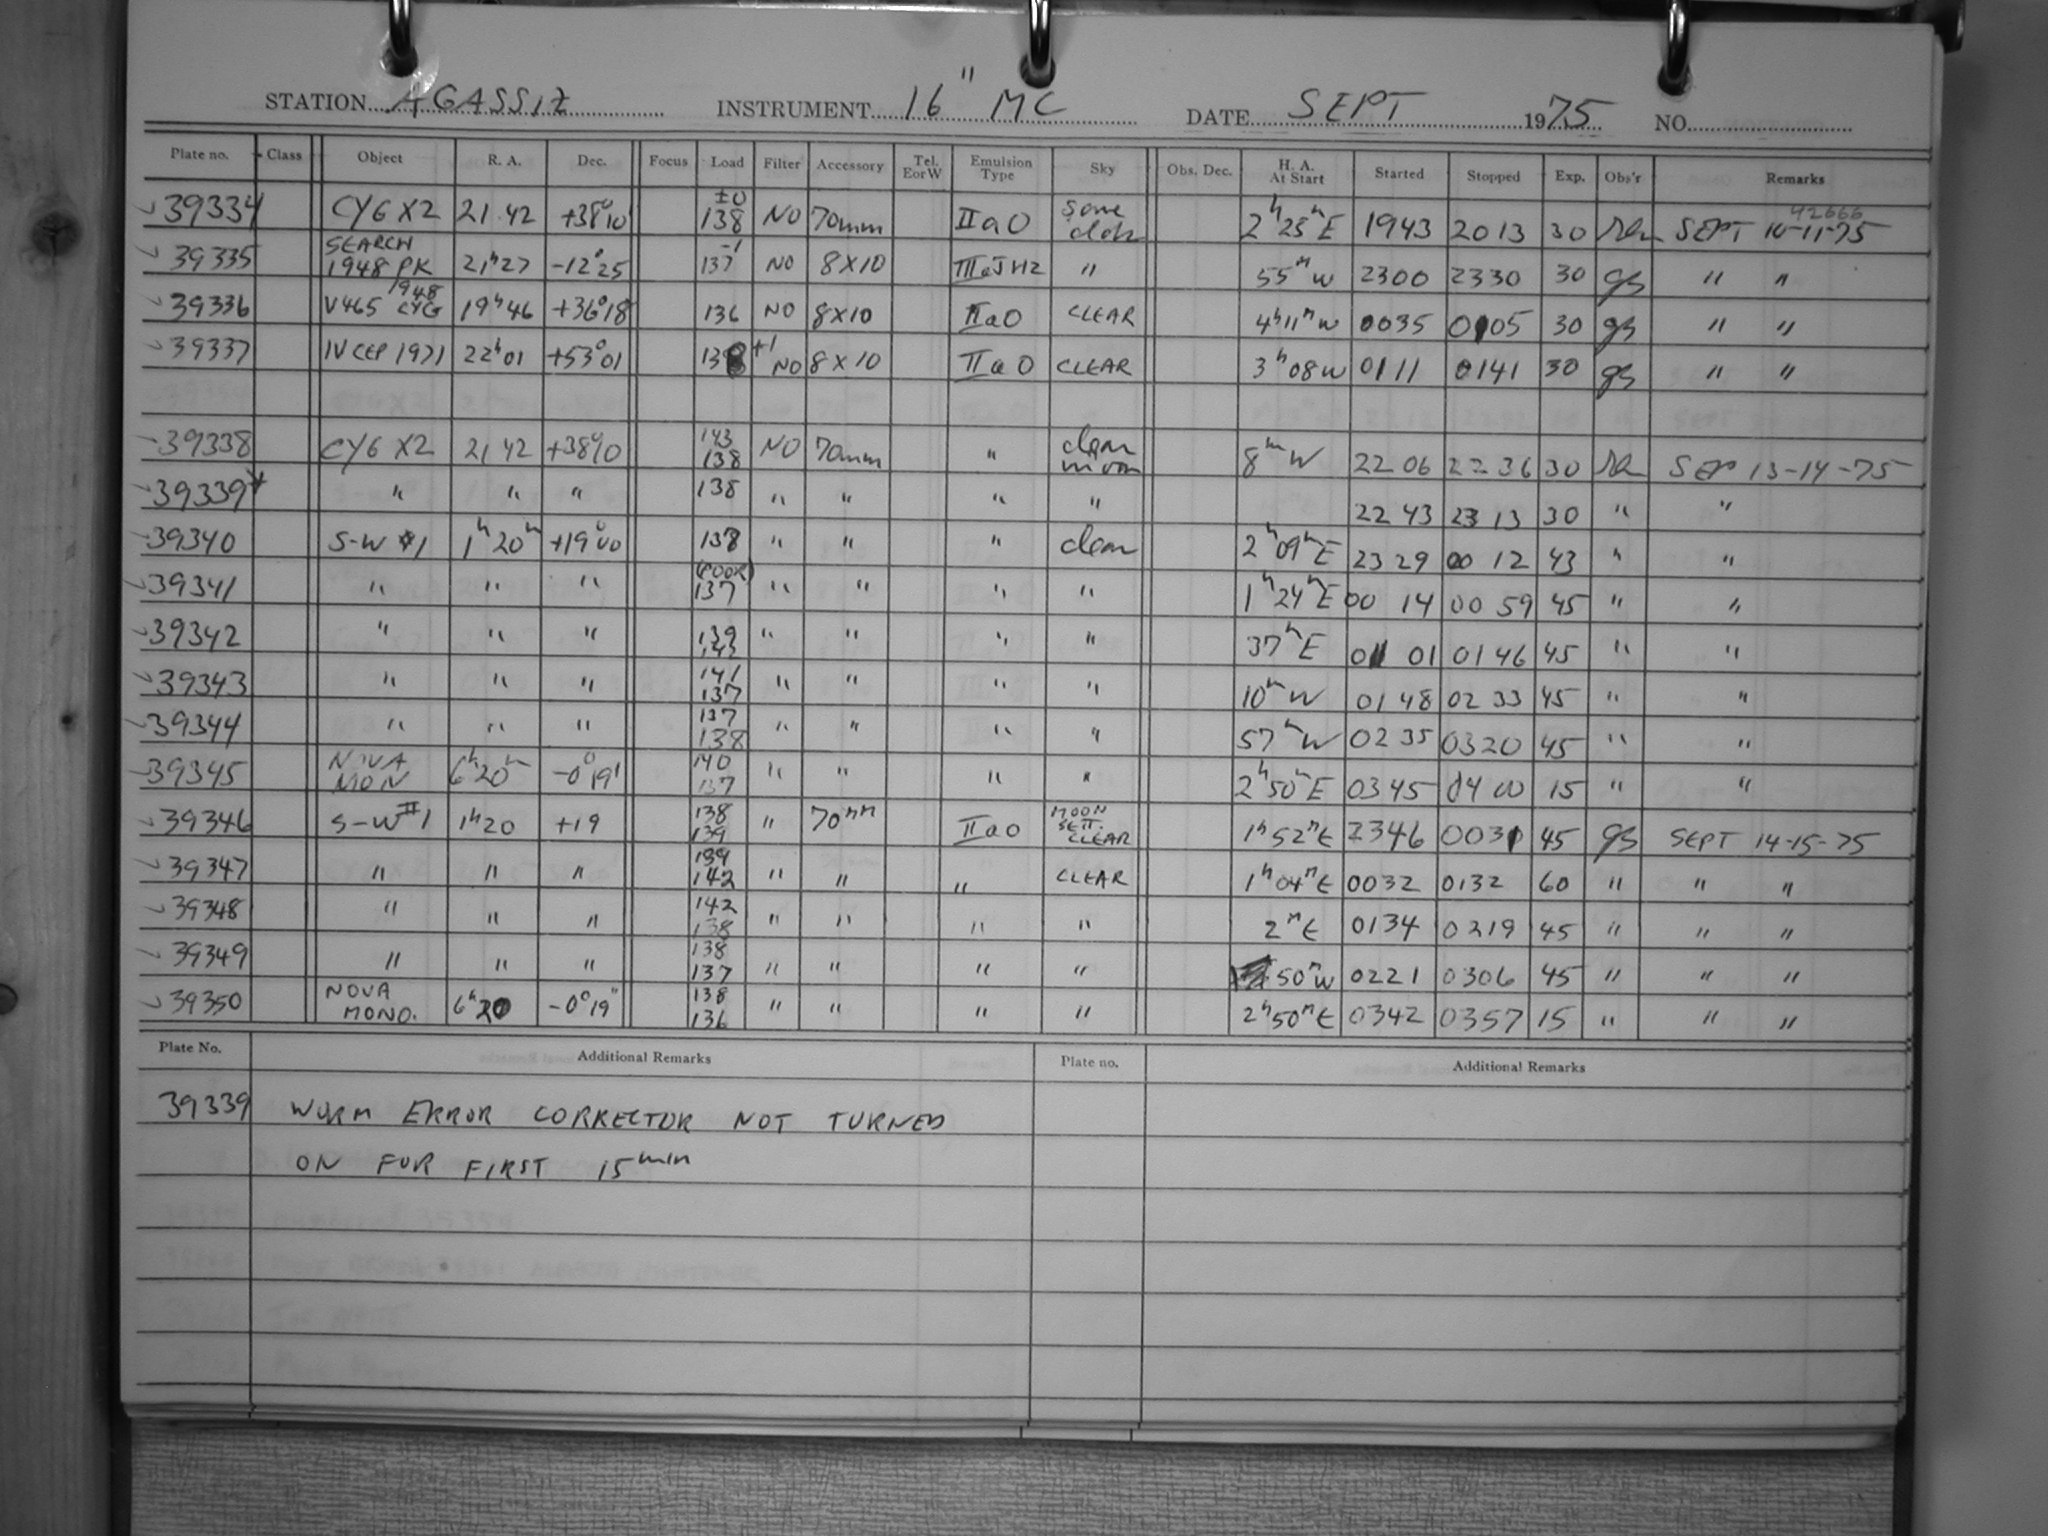 STATION AGASSIZ INSTRUMENT 16" MC DATE SEPT 1975 NO.
Plate no. Class Object R. A. Dec. Focus Load Filter Accessory Tel. EorW Emulsion Type Sky Obs. Dec. H. A. At Start Started Stopped Exp. Obs'r Remarks
39334 CYG X2 21 42 +38°10 ±0 138 NO 70mm IIaO some 2h 25m E 1943 2013 30 42666 SEPT 10-11-75
39335 SEARCH 1948 PK 21h27 -12°25 -1 137 NO 8X10 IIIaJ H2 " 55m W 2300 2330 30 gs " "
39336 V465 1948 CYG 19h46 +36°18 136 NO 8X10 IIaO CLEAR 4h11m W 0035 0105 30 gs " "
39337 IV CEP 1971 22h01 +53°01 138 +1 NO 8X10 IIaO CLEAR 3h08 W 0111 0141 30 gs " "
39338 CYG X2 21 42 +38°10 143 138 NO 70mm " clear moon 8m W 22 06 22 36 30 SEP 13-14-75
39339* " " " 138 " " " " 22 43 23 13 30 " "
39340 S-W #1 1h 20m +19°00 138 " " " clear 2h 09m E 23 29 00 12 43 " "
39341 " " " (POOR) 137 " " " " 1h 24m E 00 14 00 59 45 " "
39342 " " " 139 143 " " " " 37m E 01 01 01 46 45 " "
39343 " " " 141 137 " " " " 10m W 01 48 02 33 45 " "
39344 " " " 137 138 " " " " 57m W 02 35 0320 45 " "
39345 NOVA MON 6h20m -0°19' 140 137 " " " " 2h 50m E 0345 0400 15 " "
39346 S-W #1 1h20 +19 138 139 " 70mm IIaO MOON SETT. CLEAR 1h 52m E 2346 0031 45 gs SEPT 14-15-75
39347 " " " 139 142 " " " CLEAR 1h 04m E 0032 0132 60 " " "
39348 " " " 142 138 " " " " 2m E 0134 0219 45 " " "
39349 " " " 138 137 " " " " 50m W 0221 0306 45 " " "
39350 NOVA MONO. 6h20 -0°19" 138 136 " " " " 2h50m E 0342 0357 15 " " "
Plate No. Additional Remarks Plate no. Additional Remarks
39339 WORM ERROR CORRECTOR NOT TURNED
ON FOR FIRST 15min